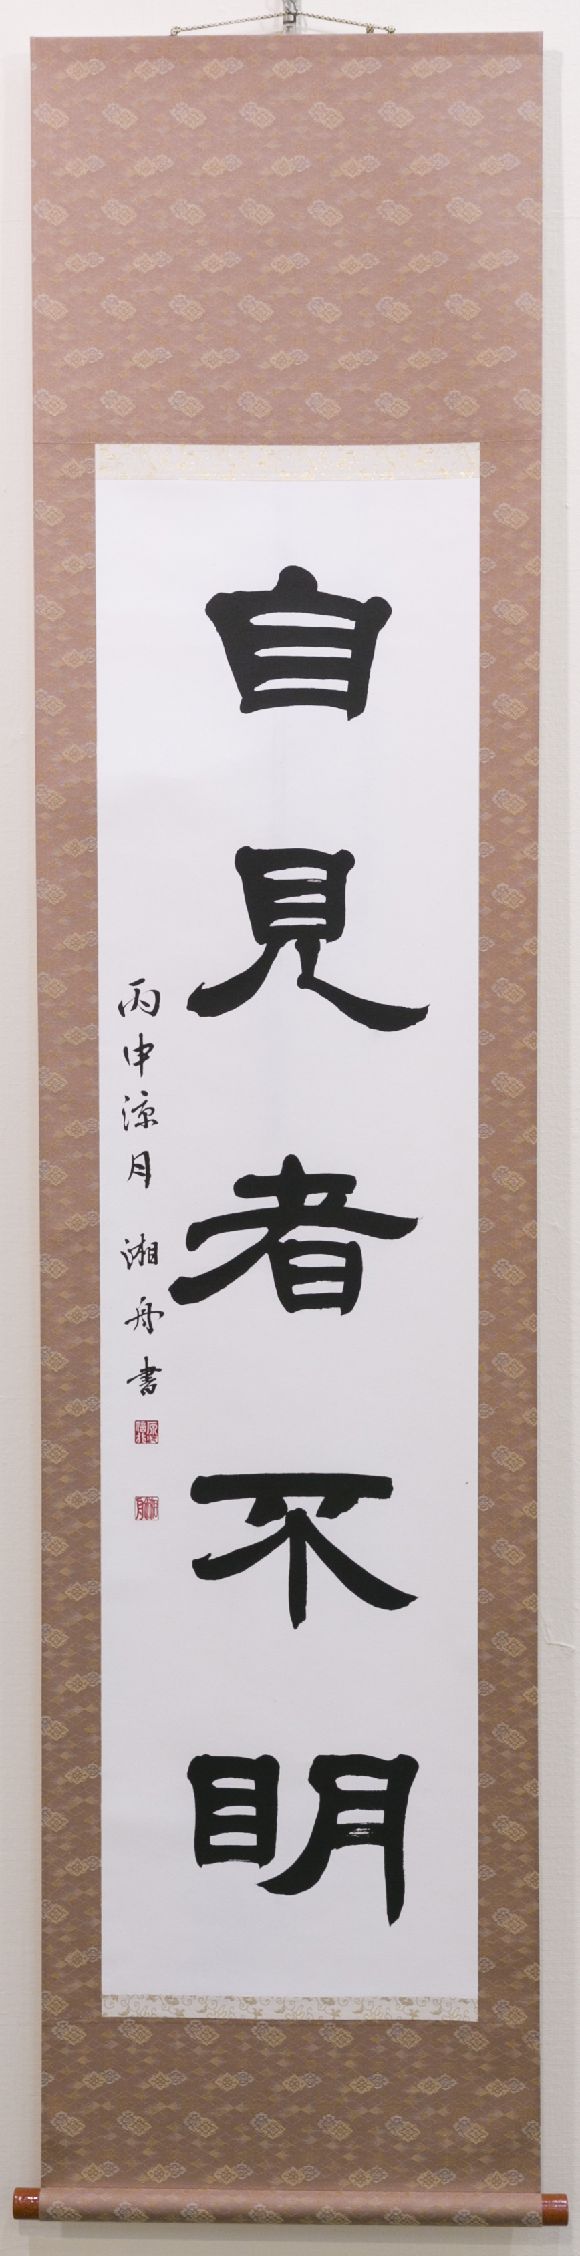 自見者不明
丙申涼月 湘舟書